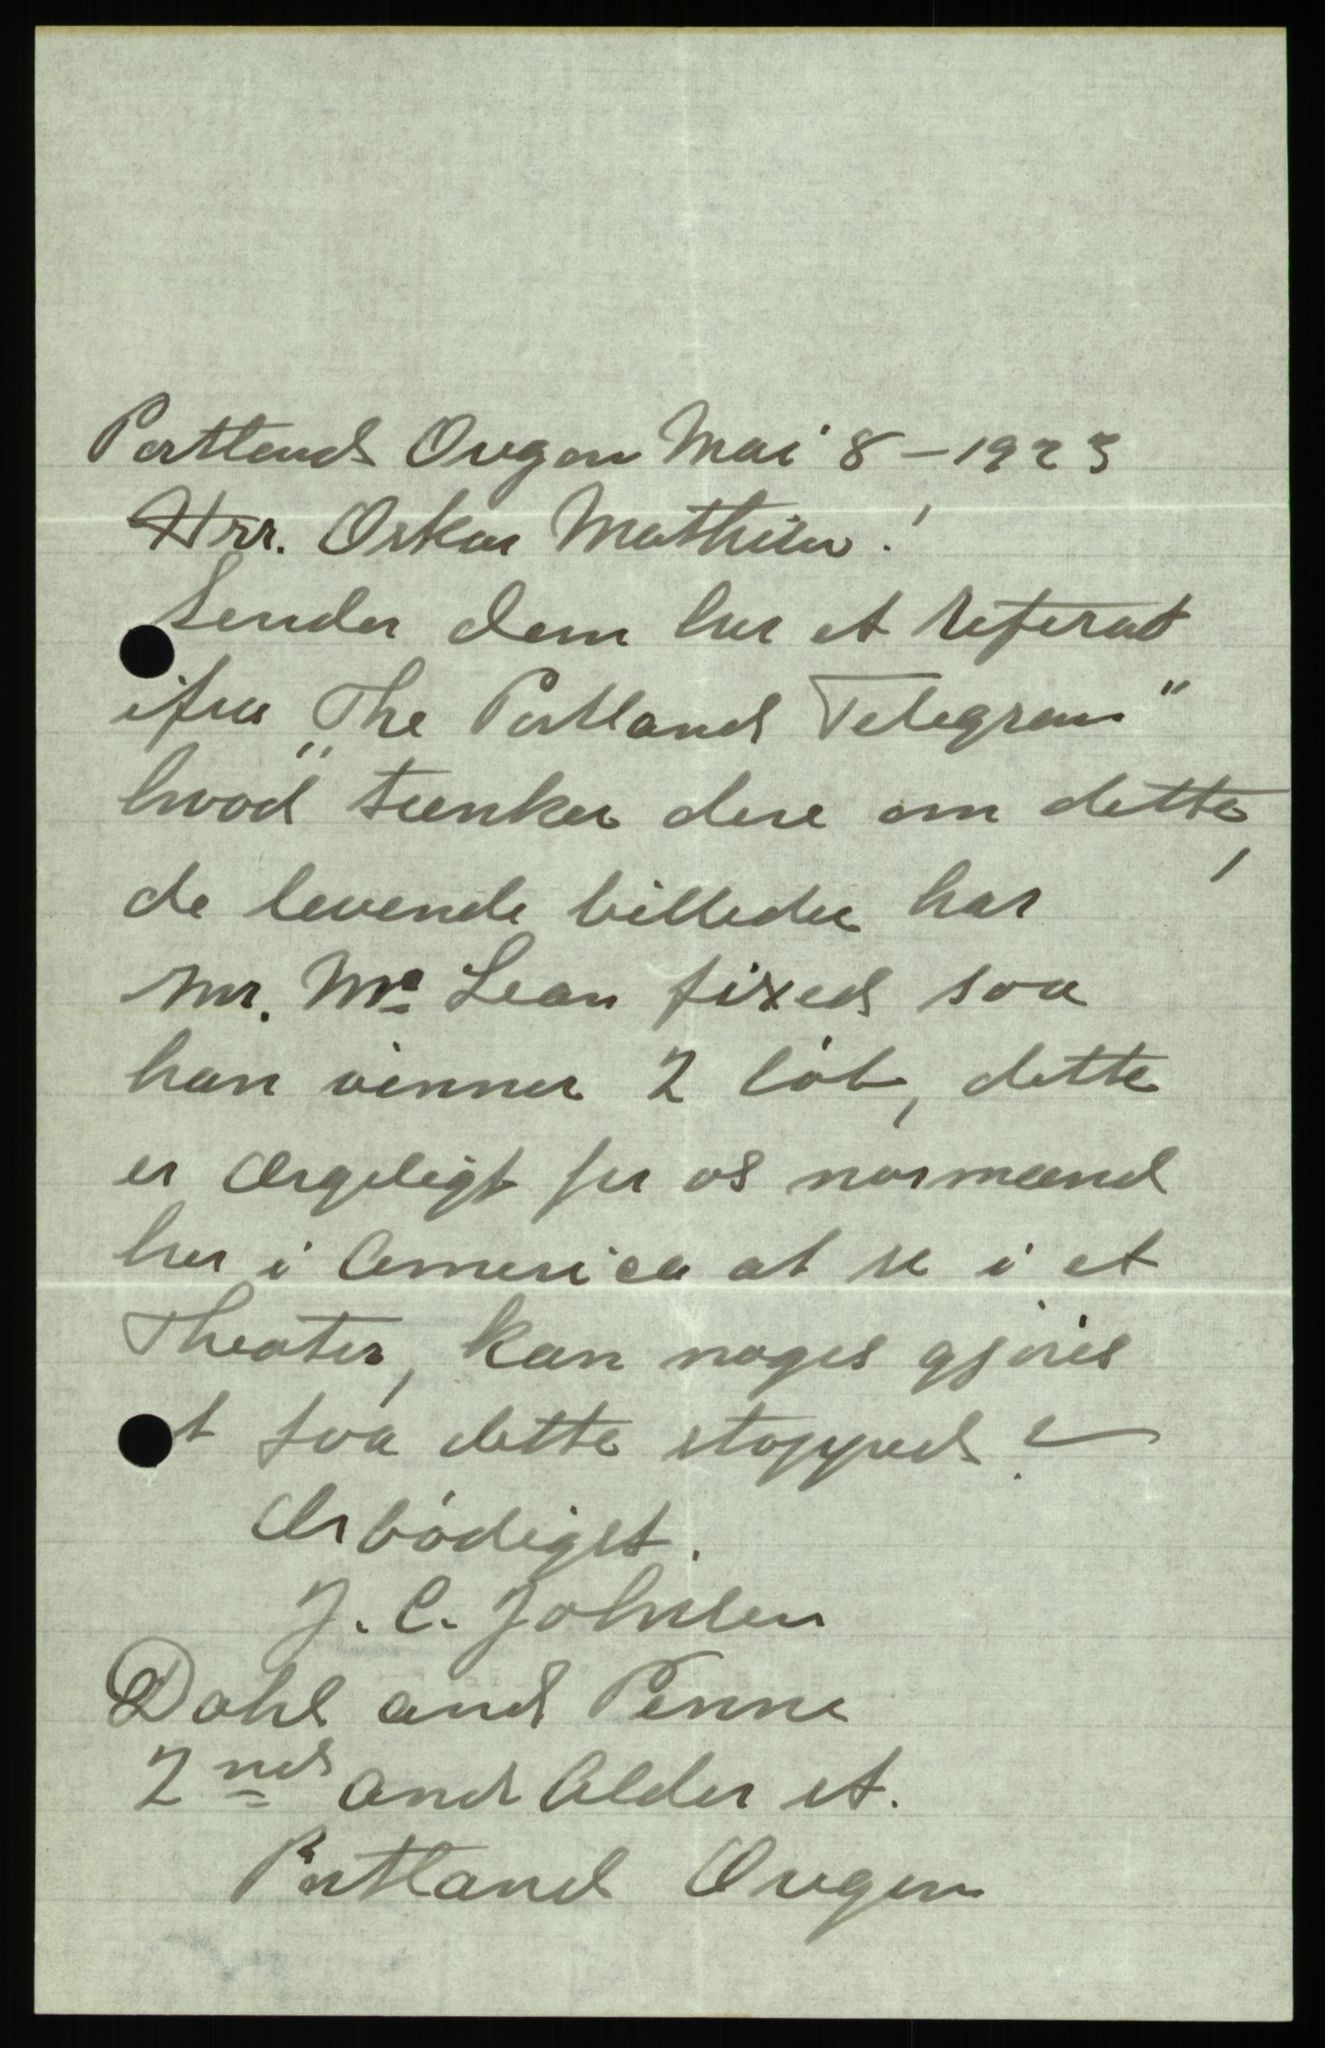 Portland Oregon Mai 8 – 1923
Hrr. Oskar Mathisen!
Sender dem her et referat
ifra „The Portland Telegram"
hvad tænker dere om dette,
de levende billeder har
Mr. Mc Lean fixed saa
han vinner 2 löb, dette
er ærgeligt for os normænd
her i America at se i et
Theater, kan noget gjöres
at faa dette stopped?
Ærbödigst.
J. C. Johnsen
Dahl and Penne
2nd and Alder st.
Portland Oregon